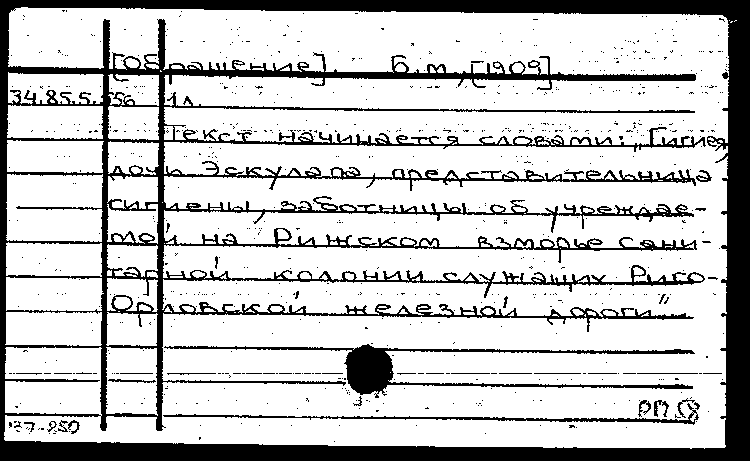 [Обращение]. Б.м., [1909].
34.85.5.556 1л.
Текст начинается словами: „Гигиея,
дочь Эскулапа, представительница
гигиены, заботницы об учреждае-
мой на Рижском взморье сани-
тарной колонии служащих Риго-
Орловской железной дороги"
РП.
37-850